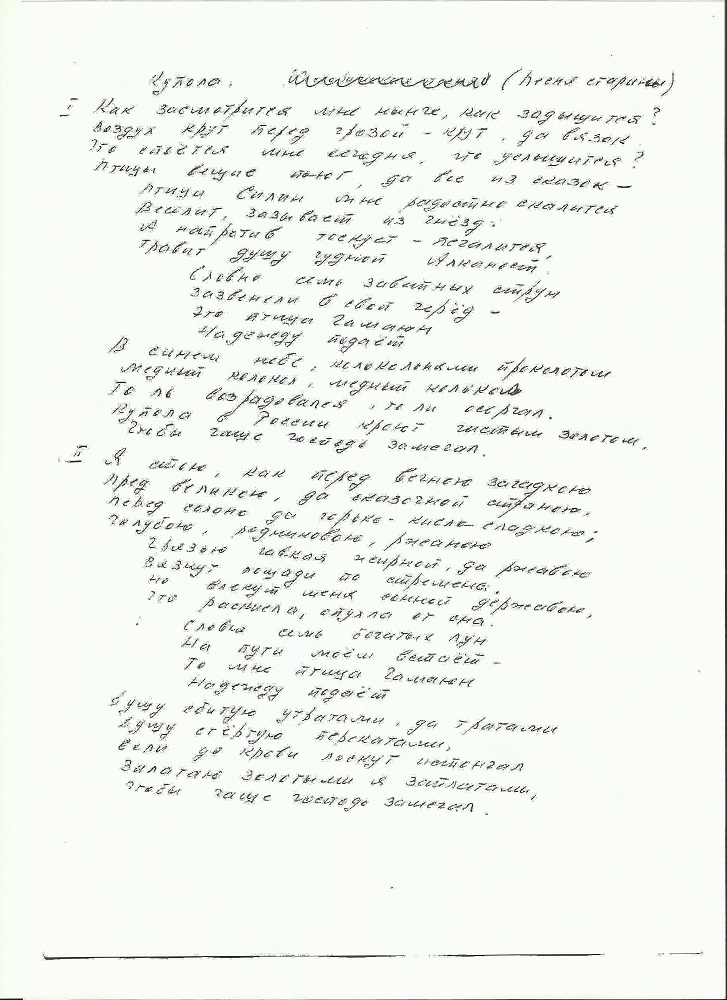 Купола. (Песня старины)
I Как засмотрится мне нынче, как задышится?
Воздух крут перед грозой - крут, да вязок.
Что споётся мне сегодня, что услышится?
Птицы вещие поют, да все из сказок -
Птица Сирин мне радостно скалится
Веселит, зазывает из гнёзд:
А напротив тоскует - печалится,
Травит душу чудной Алканост.
Словно семь заветных струн
Зазвенели в свой черёд -
Это птица Гамаюн
Надежду подаёт
В синем небе, колокольнями проколотом
Медный колокол, медный колокол
То ль возрадовался, то ли осерчал.
Купола в России кроют чистым золотом,
Чтобы чаще господь замечал.
II Я стою, как перед вечною загадкою
Пред великою, да сказочной страною.
Перед солоно да горько-кисло-сладкою;
Голубою, родниковою, ржаною
Грязью чавкая жирной, да ржавою
Вязнут лошади по стремена.
Но влекут меня сонной державою,
Что раскисла, опухла от сна.
Словно семь богатых лун
На пути моём встаёт -
То мне птица Гамаюн
Надежду подаёт
Душу сбитую утратами, да тратами
Душу стёртую перекатами,
Если до крови лоскут истончал
Залатаю золотыми я заплатами,
Чтобы чаще господь замечал.